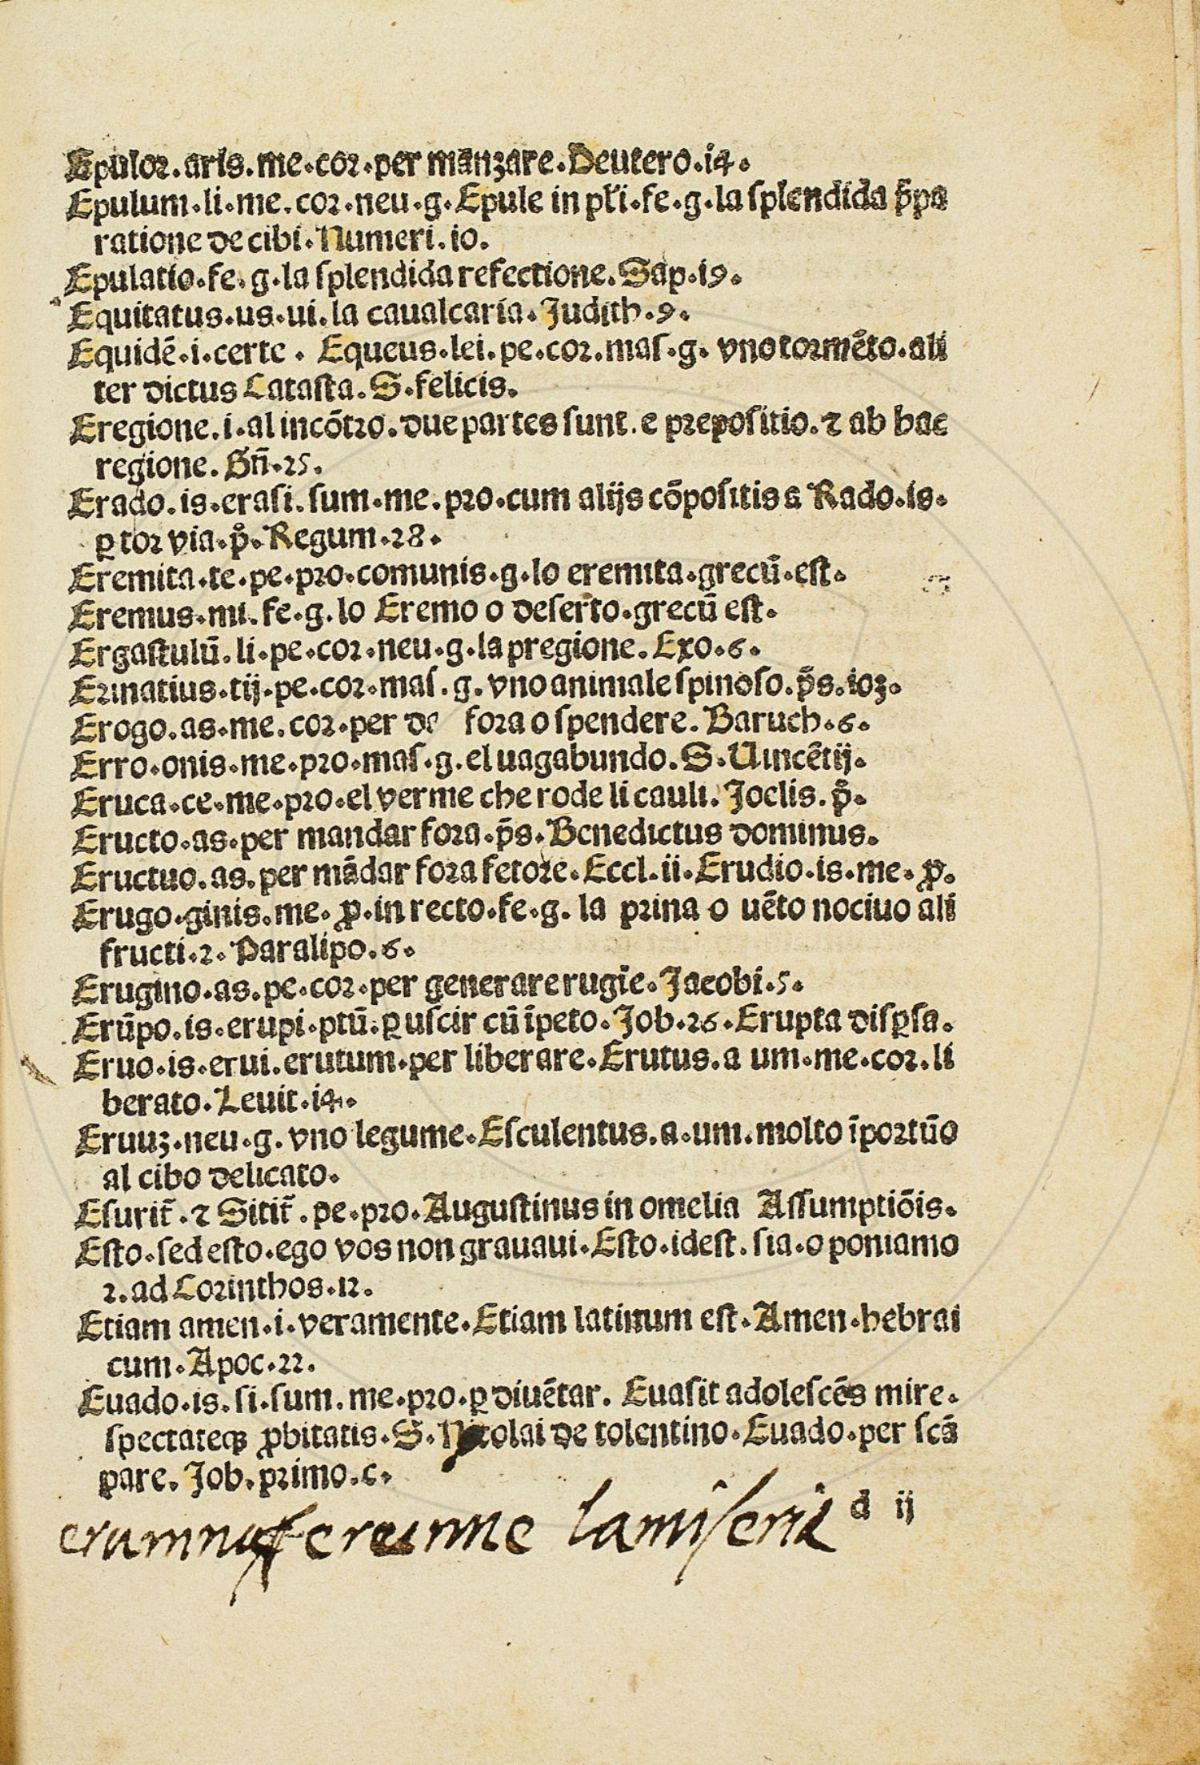 Epulor.aris.me.cor.per mãnzare.Deutero.i4.
Epulum.li.me.cor.neu.g.Epule in pl̃i.fe.g.la splendida p̃pa
ratione de cibi.Numeri.io.
Epulatio.fe.g.la splendida refectione.Sap.i9.
Equitatus.us.ui.la caualcaria.Judith.9.
Equidẽ.i.certe. Equeus.lei.pe.cor.mas.g.vno tormẽto.ali
ter dictus Catasta.S.felicis.
Eregione.i.al incõtro.due partes sunt.e prepositio.⁊ ab hac
regione.Gñ.25.
Erado.is.erasi.sum.me.pro.cum alijs cõpositis a Rado.is.
ꝑ tor via.p̊.Regum.28.
Eremita.te.pe.pro.comunis.g.lo eremita.grecũ.est.
Eremus.mi.fe.g.lo Eremo o deserto.grecũ est.
Ergastulũ.li.pe.cor.neu.g.la pregione.Exo.6.
Erinatius.tij.pe.cor.mas.g.vno animale spinoso.p̃s.io3.
Erogo.as.me.cor.per de fora o spendere.Baruch.6.
Erro.onis.me.pro.mas.g.el uagabundo.S.Uincẽtij.
Eruca.ce.me.pro.el verme che rode li cauli.Joelis.p̊.
Eructo.as.per mandar fora.p̃s.Benedictus dominus.
Eructuo.as.per mãdar fora fetore.Eccl.ii.Erudio.is.me.ꝓ.
Erugo.ginis.me.ꝓ.in recto.fe.g.la prina o uẽto nociuo ali
fructi.2.Paralipo.6.
Erugino.as.pe.cor.per generare rugie.Jacobi.5.
Erũpo.is.erupi.ptũ.ꝑ uscir cũ ĩpeto.Job.26.Erupta disꝑsa.
Eruo.is.erui.erutum.per liberare.Erutus.a um.me.cor.li
berato.Leuit.i4.
Eruuꝫ.neu.g.vno legume.Esculentus.a.um.molto ĩportũo
al cibo delicato.
Esurit̃.⁊ Sitit̃.pe.pro.Augustinus in omelia Assumptiõis.
Esto.sed esto.ego vos non grauaui.Esto.idest.sia.o poniamo
2.ad Corinthos.12.
Etiam amen.i.veramente.Etiam latinum est.Amen.hebrai
cum.Apoc.22.
Euado.is.si.sum.me.pro.ꝑ diuẽtar. Euasit adolescẽs mire.
spectateqꝫ ꝓbitatis.S.Nicolai de tolentino.Euado.per scã
pare.Job.primo.c.
d ij
la miseria